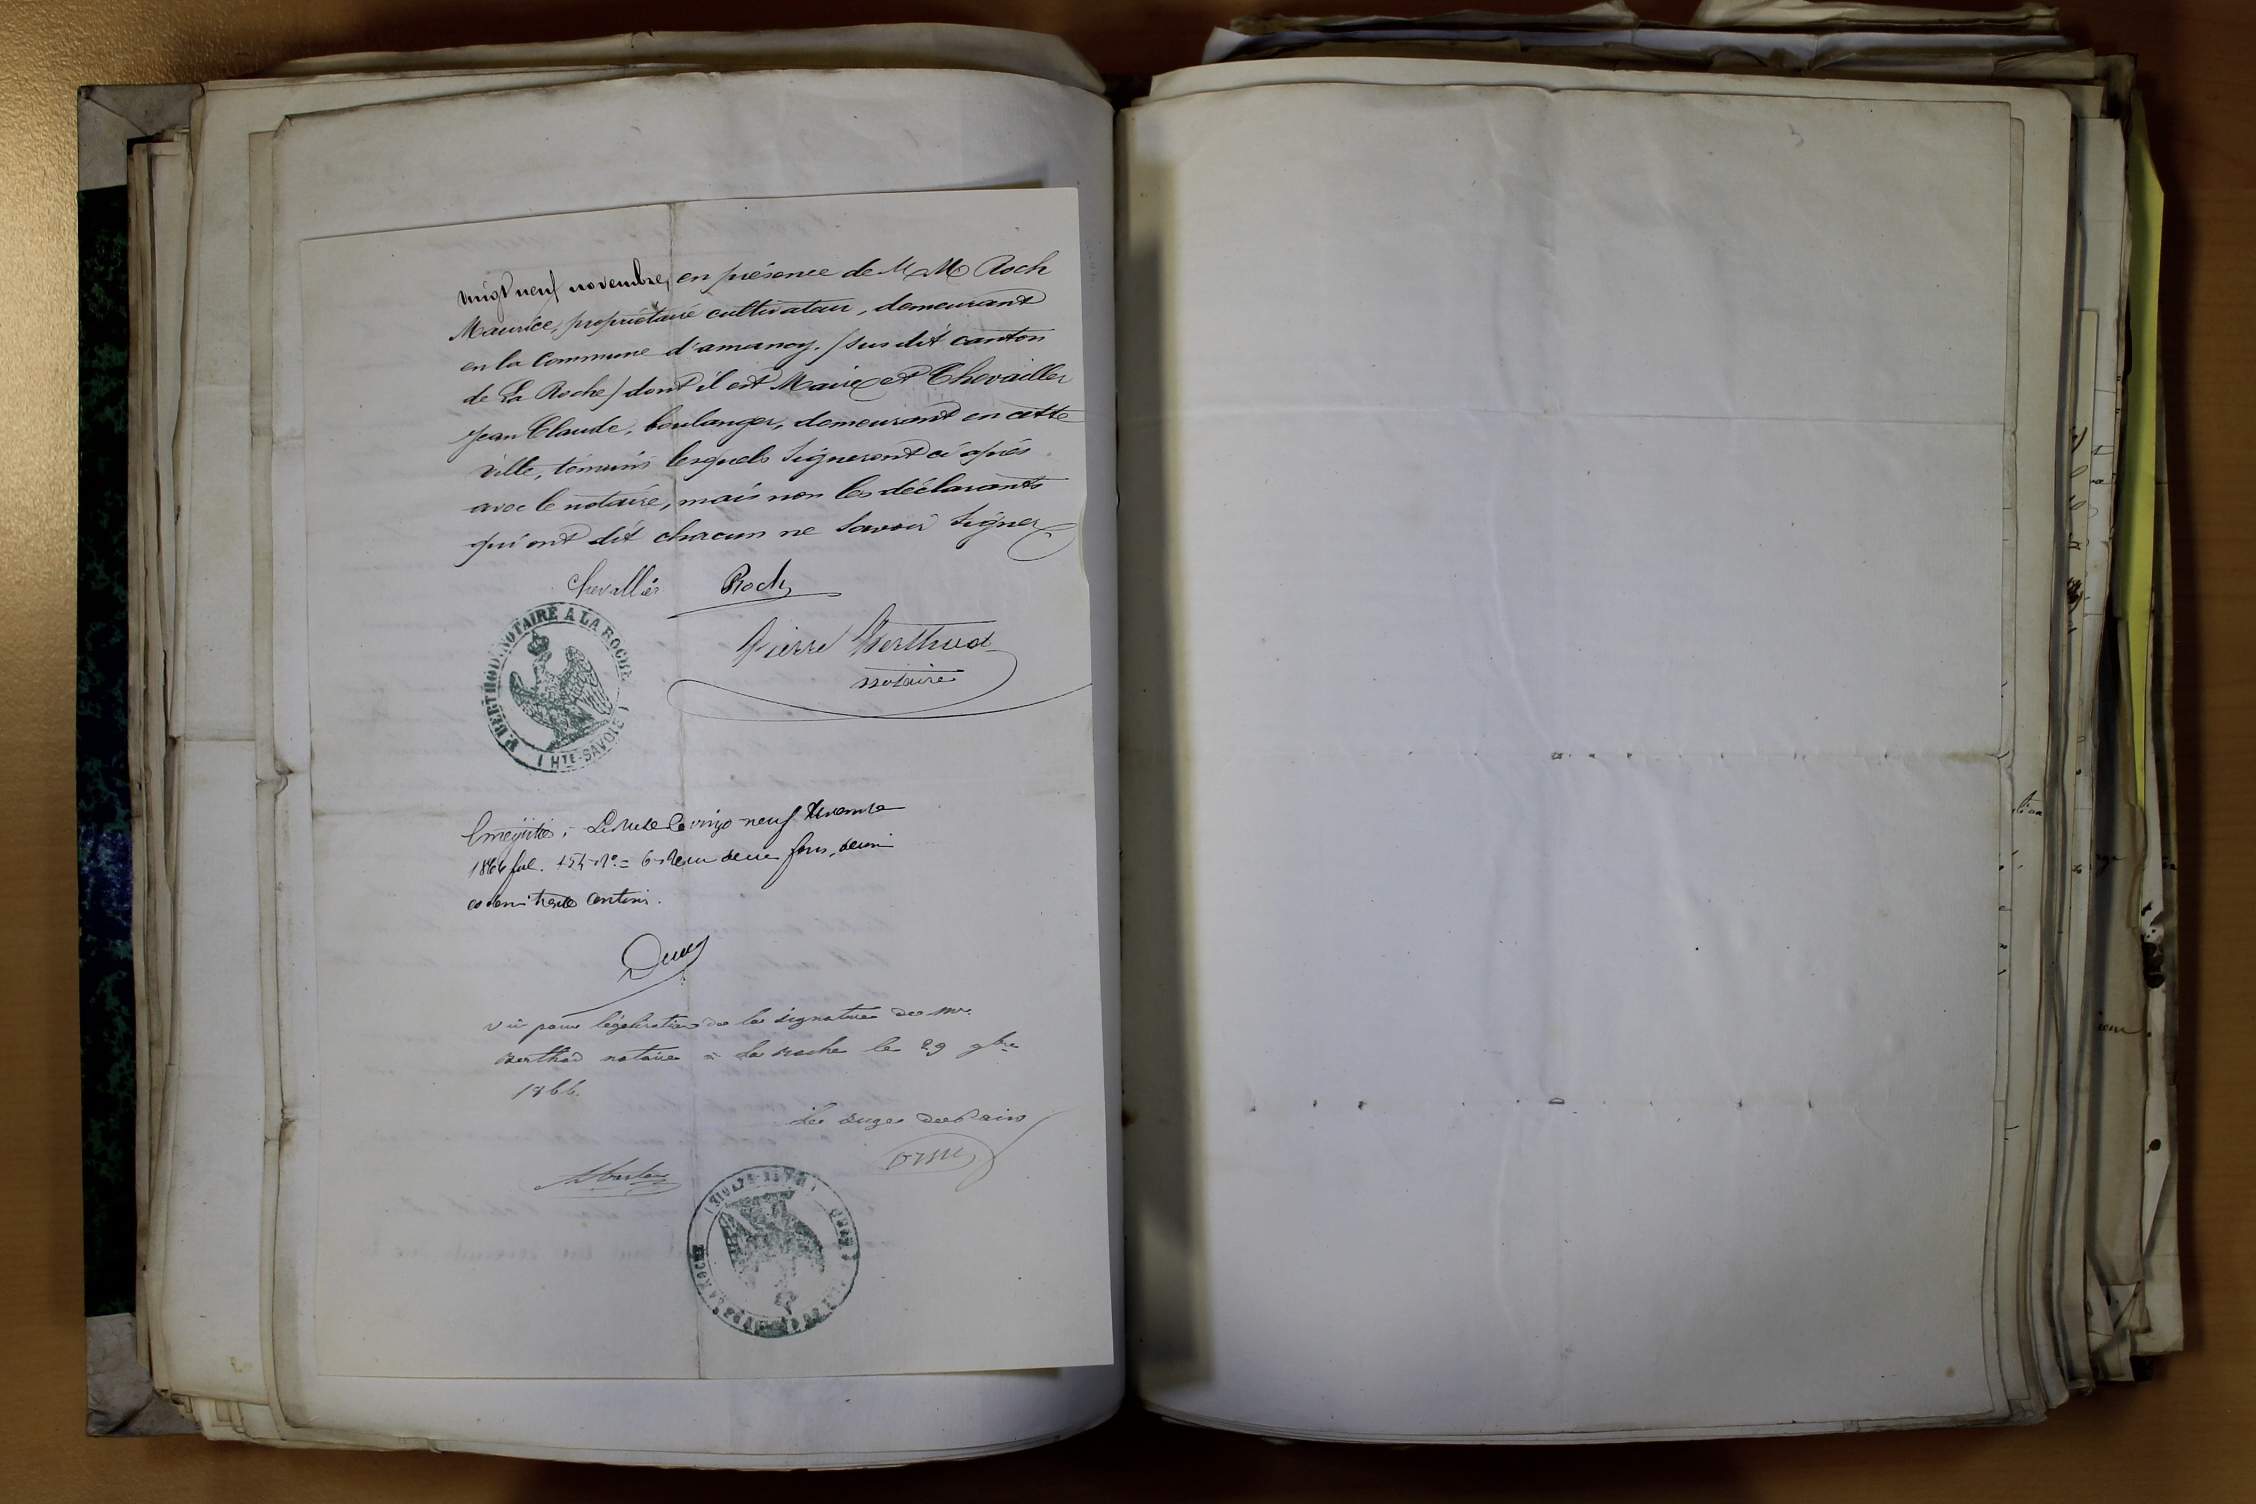 vingt neuf novembre, en présence de M M Roch
Maurice, propriétaire cultivateur, demeurant
en la Commune d'amancy. / sus dit canton
de La Roche / dont il est Maire et Chevallier
Jean Claude, boulanger, demeurant en cette
ville, témoins lesquels signeront ci après
avec le notaire, mais non les déclarants
qui ont dit chacun ne savoir signer
Chevallier Roch
Pierre Berthod
notaire
P. BERTHOD. NOTAIRE A LA ROCHE
( HTE-SAVOIE )
neuf
1866 fol. 154 No = 6 deux fons, decim
centimes.
Vu pour légalisation de la signature de Mr.
Berthod notaire à La Roche le 29 9bre
1866.
Le Juge de Paix